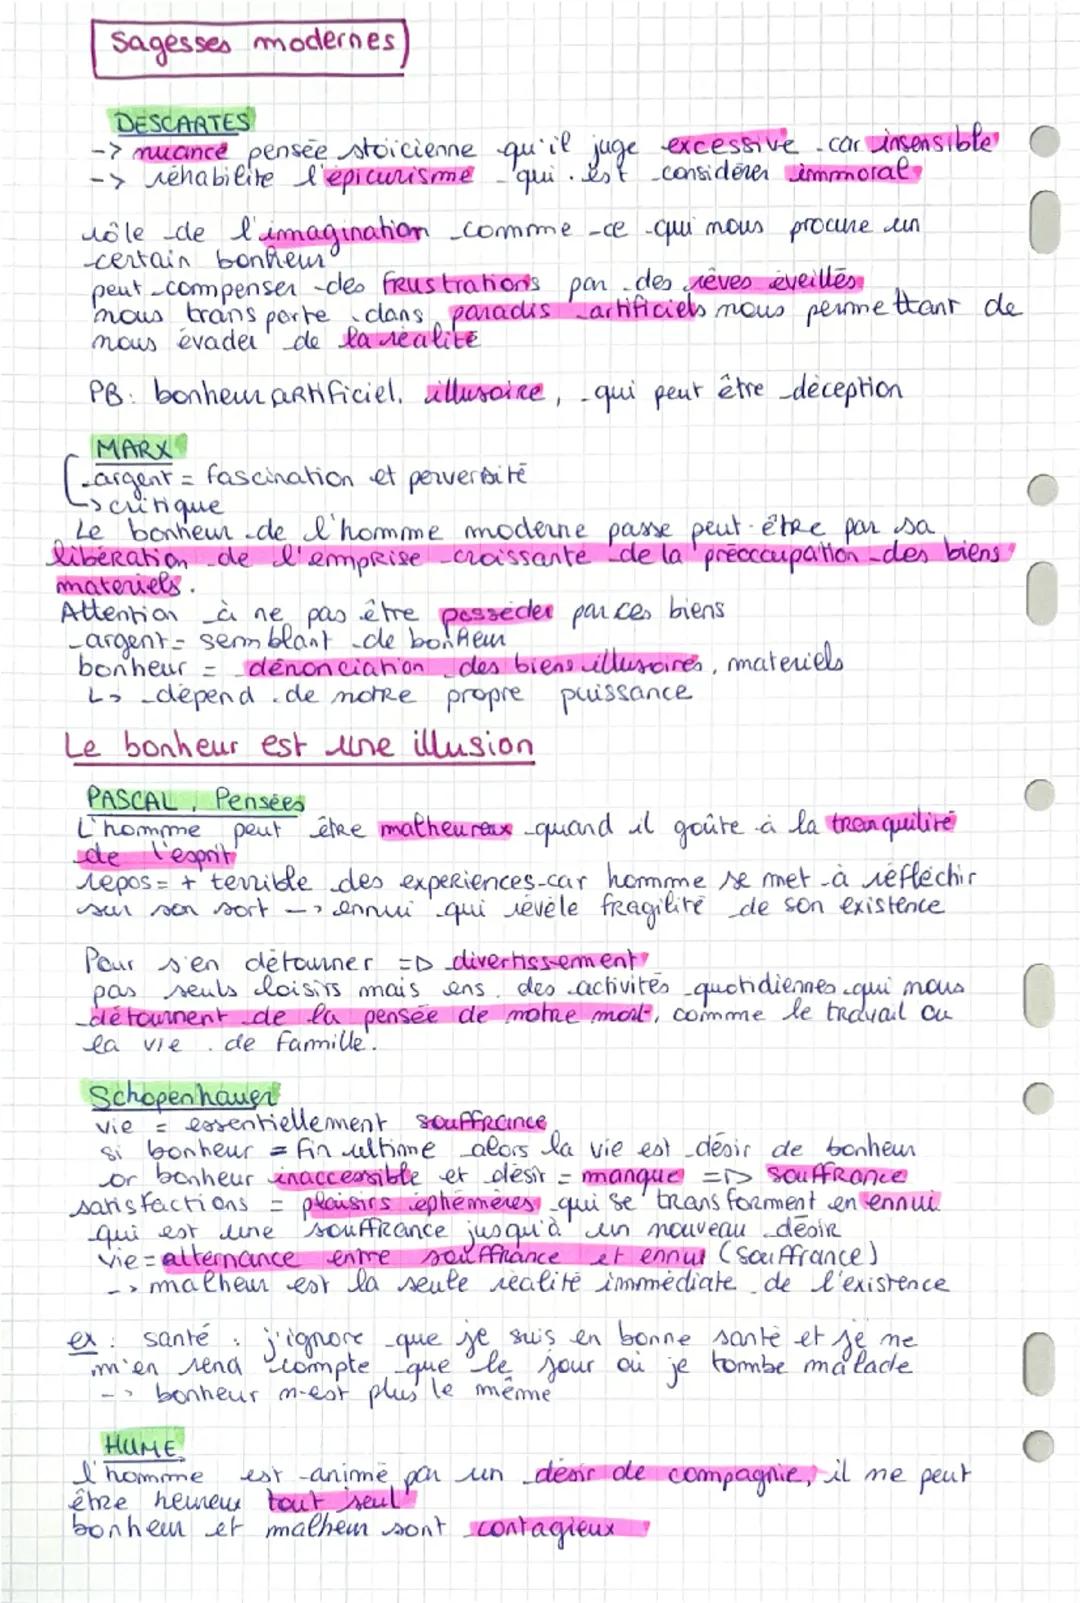 Sagesses modernes
DESCARTES
-> nuance pensée stoicienne qu'il juge excessive car insensible
-> réhabilite l'epicurisme qui est considérer immoral
rôle de l'imagination comme ce qui nous procure un
certain bonheur
peut compenser des frustrations par des rêves éveillés
nous transporte dans paradis artificiels nous permettant de
nous évader de la réalité
PB : bonheur artificiel, illusoire, qui peut être déception
MARX
argent = fascination et perversité
-> critique
Le bonheur de l'homme moderne passe peut-être par sa
libération de l'emprise croissante de la préoccupation des biens
materiels.
Attention à ne pas être posséder par ces biens
argent = semblant de bonheur
bonheur = dénonciation des biens illusoires, materiels
↳ dépend de notre propre puissance
Le bonheur est une illusion
PASCAL, Pensées
L'homme peut être malheureux quand il goûte à la tranquilité
de l'esprit
repos = + terrible des experiences car homme se met à réfléchir
sur son sort -> ennui qui révèle fragilité de son existence
Pour s'en détourner => divertissement
pas seuls loisirs mais ens. des activités quotidiennes qui nous
détournent de la pensée de notre mort, comme le travail ou
la vie de famille.
Schopenhauer
vie = essentiellement souffrance
si bonheur = fin ultime alors la vie est désir de bonheur
or bonheur inaccessible et désir = manque => souffrance
satisfactions = plaisirs éphémères qui se transforment en ennui
qui est une souffrance jusqu'à un nouveau désir
vie = alternance entre souffrance et ennui (souffrance)
-> malheur est la seule réalité immédiate de l'existence
ex : santé : j'ignore que je suis en bonne santé et je ne
m'en rend compte que le jour où je tombe malade
-> bonheur n'est plus le même
HUME
l'homme est animé par un désir de compagnie, il ne peut
être heureux tout seul
bonheur et malheur sont contagieux